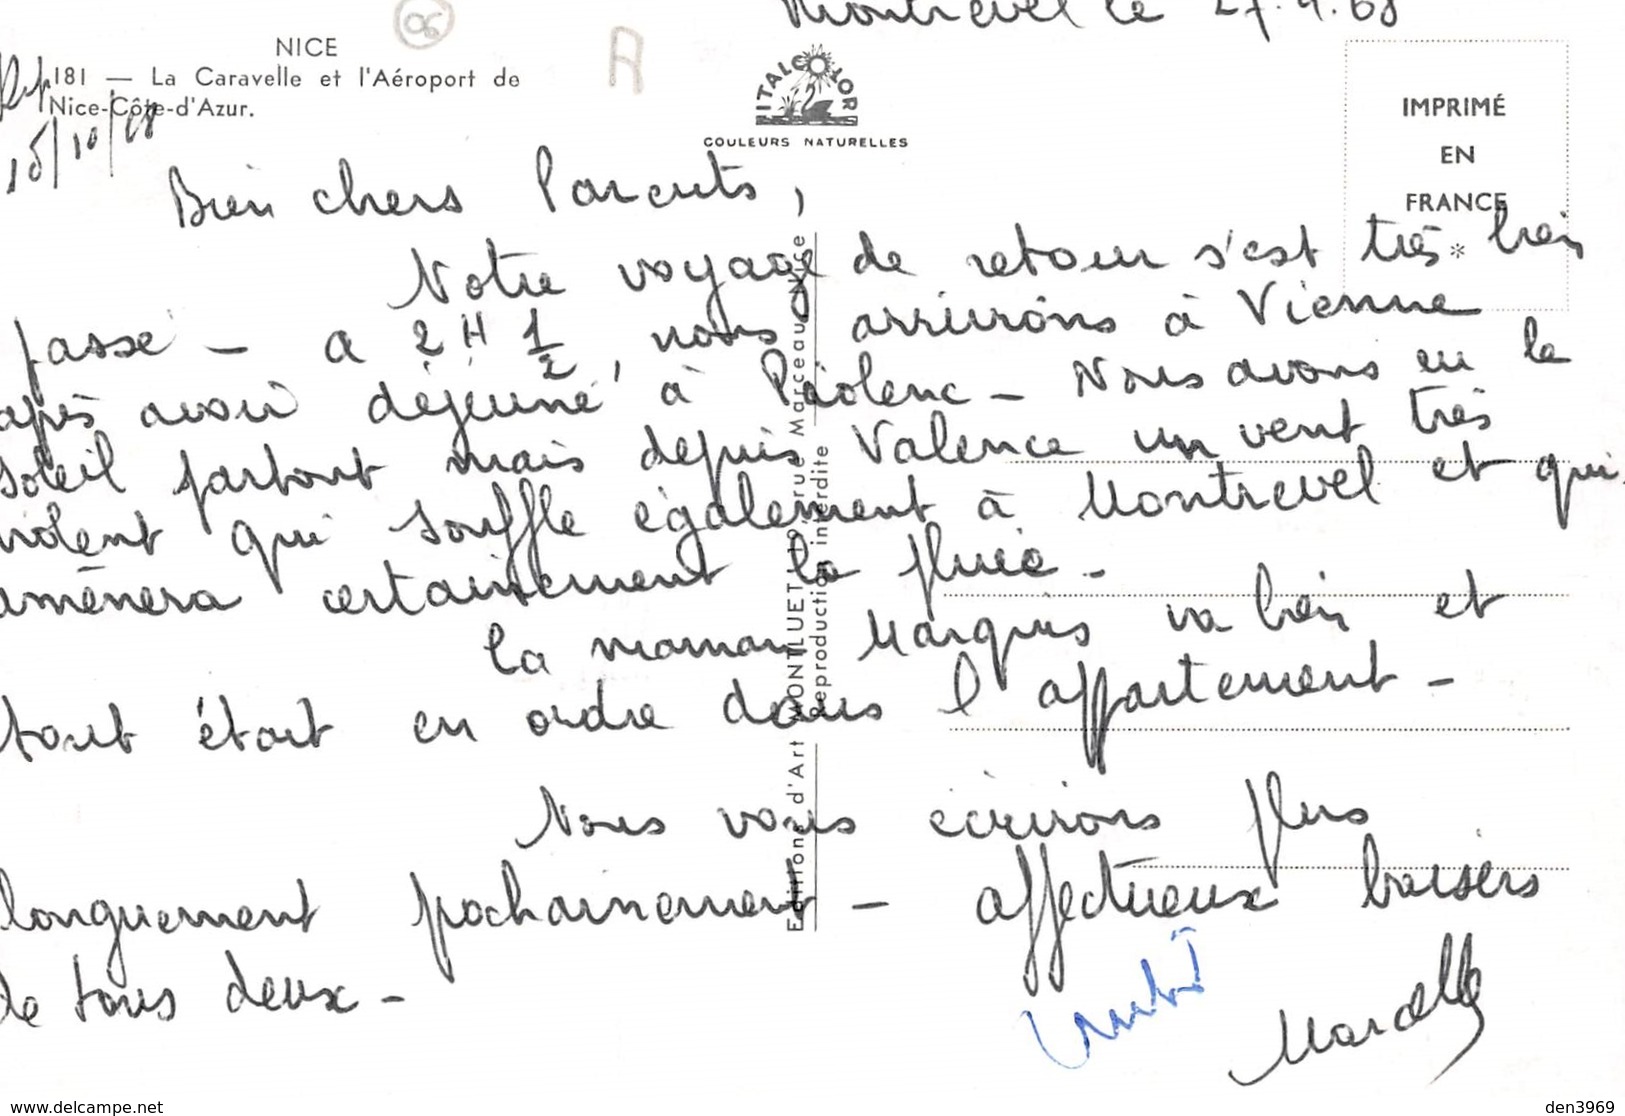 Montrevel le 27.9.68
NICE
181 — La Caravelle et l'Aéroport de
Nice-Côte-d'Azur.
Rep
15/10/68
06
A
ITALCOLOR
COULEURS NATURELLES
IMPRIMÉ
EN
FRANCE
*
Bien chers Parents,
Notre voyage de retour s'est très bien
passé - a 2H 1/2, nous arrivions à Vienne
après avoir déjeuné à Piolenc - Nous avons eu le
soleil partout mais depuis Valence un vent très
violent qui souffle également à Montrevel et qui
amènera certainement la pluie -
La maman Marquis va bien et
tout était en ordre dans l'appartement -
Nous vous écrirons plus
longuement prochainement - affectueux baisers
de tous deux -
Marcelle
Editions d'Art MONTLUET 19, rue Marceau Nice
Reproduction interdite
www.delcampe.net
den3969